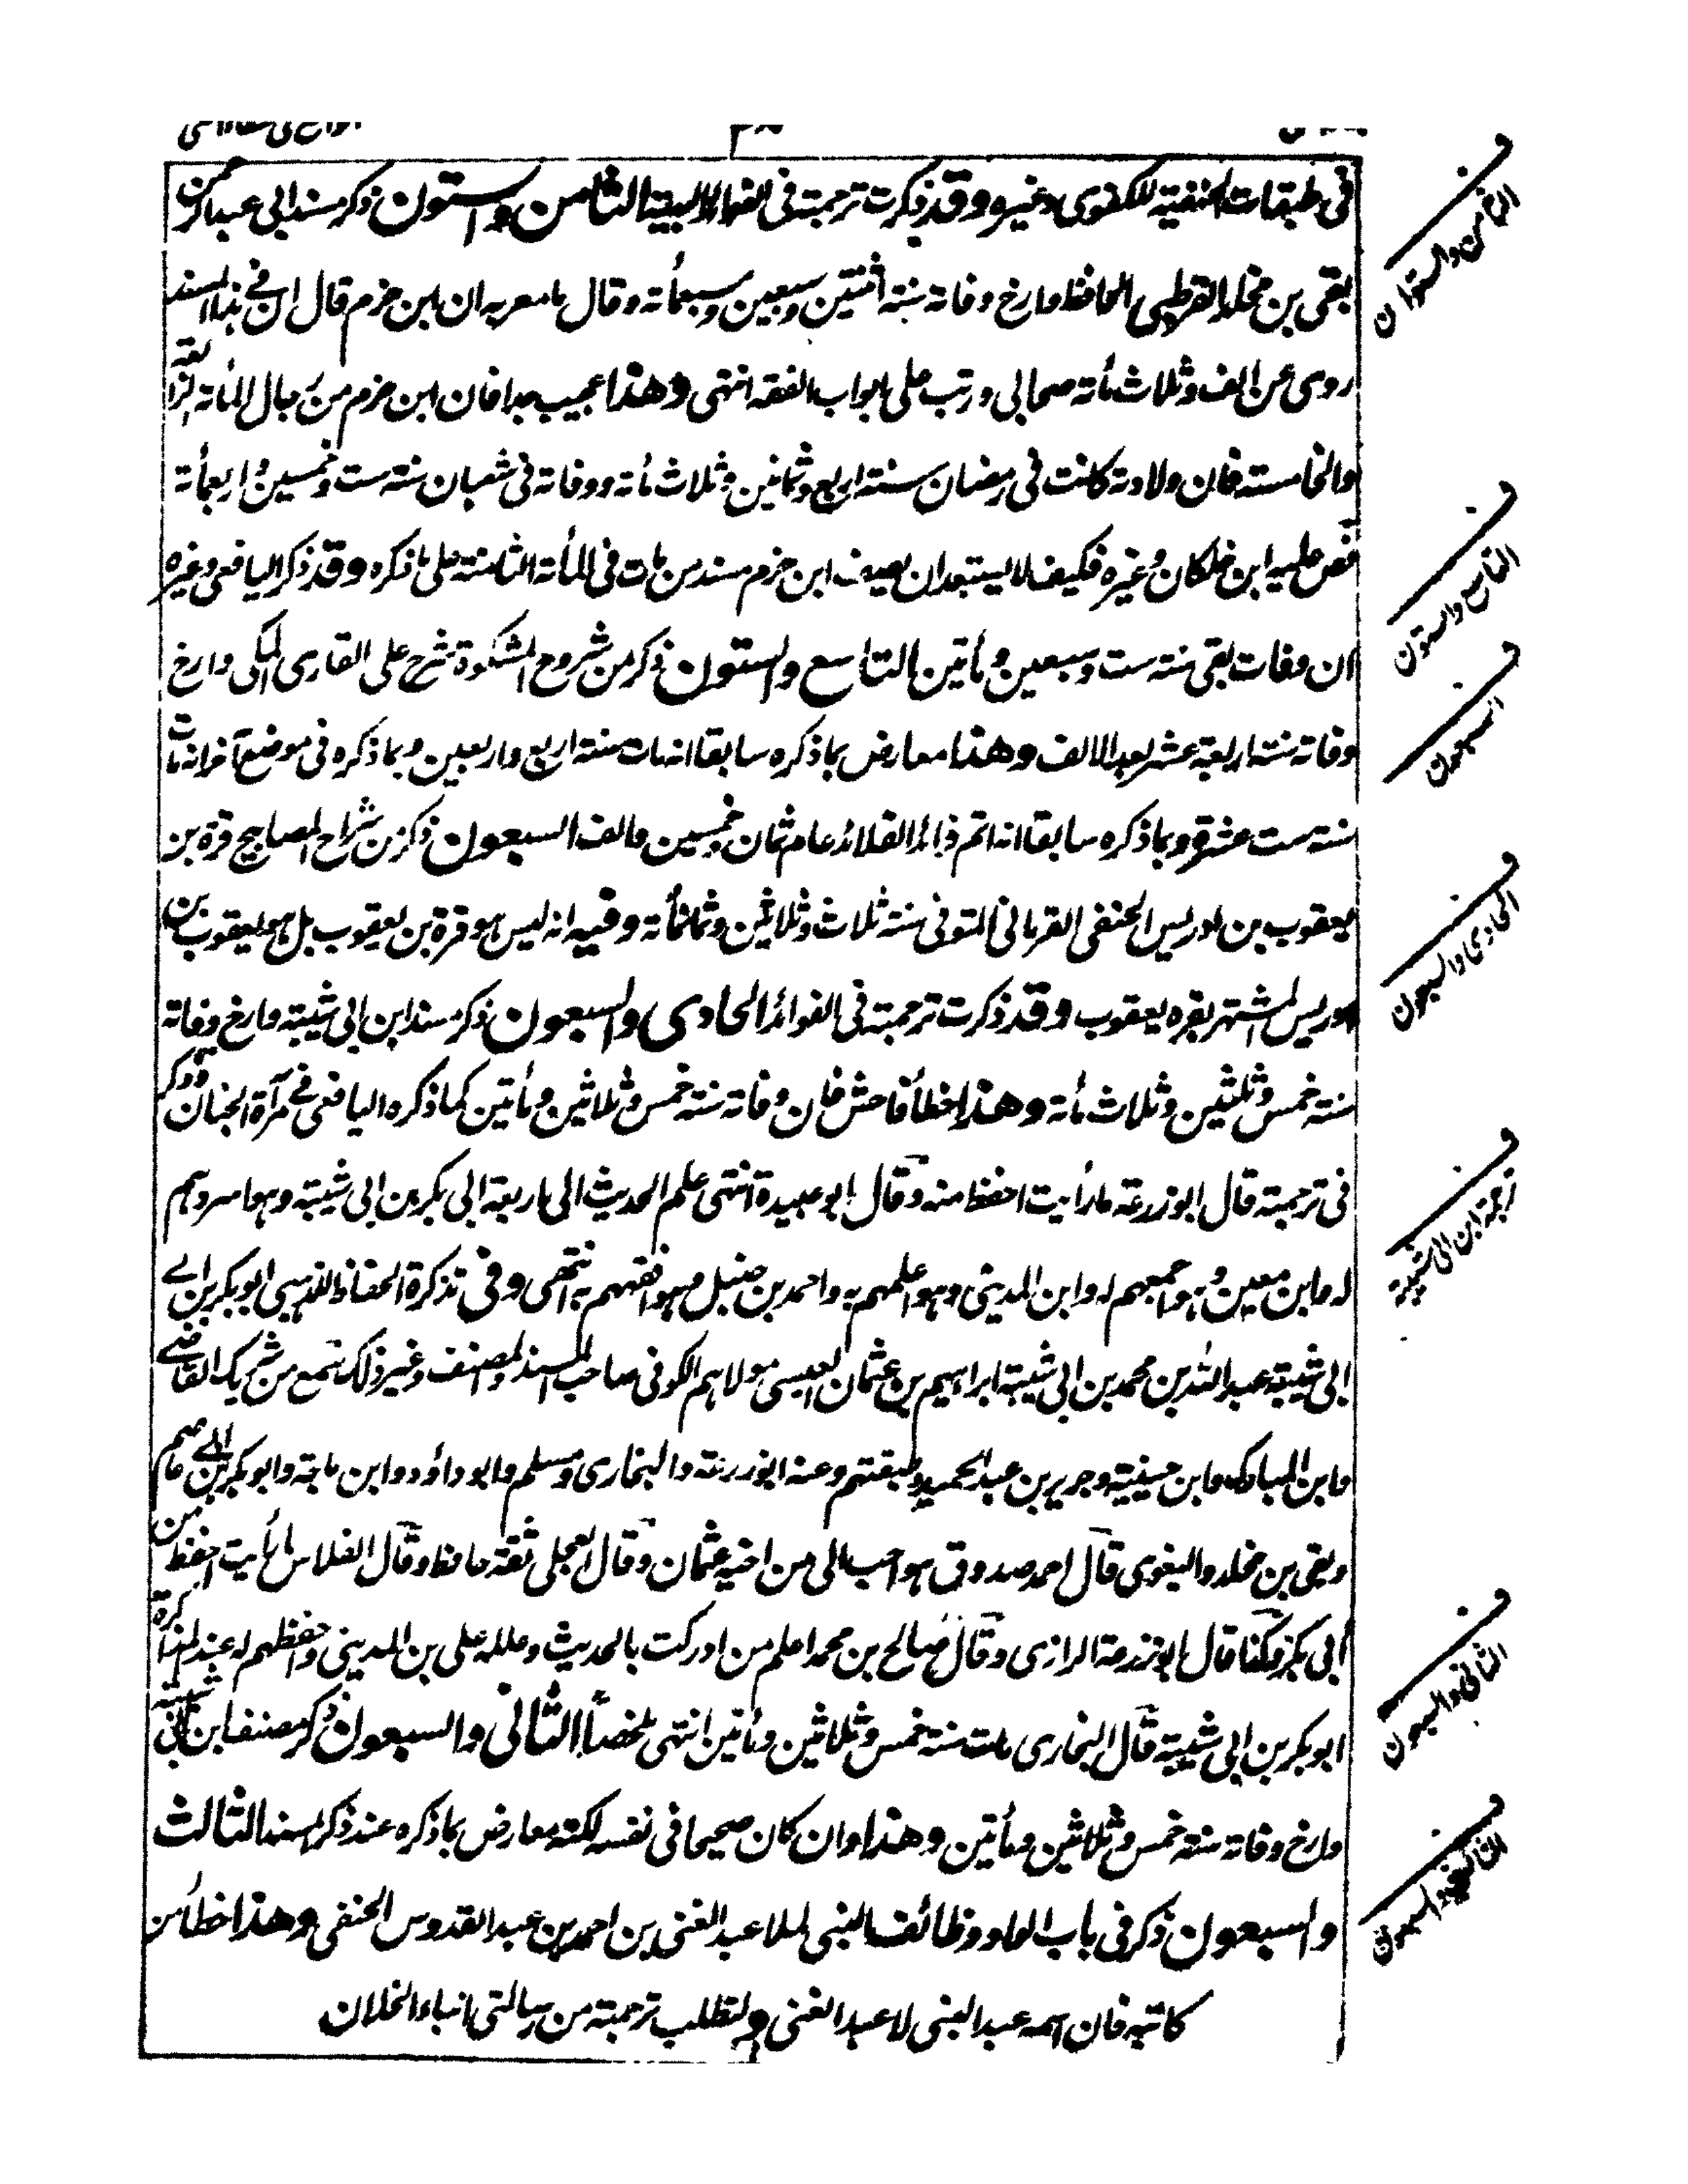 فى طبقات الحنفية للكفوى وغيره وقد ذكرت ترجمته فى الفوائد البهية الثامن والستون ذكر مسند ابى عبد الرحمن
بقى بن مخلد القرطبى الحافظ وارخ وفاته سنة اثنتين وسبعين وسبعمأته وقال ما معربه ان ابن حزم قال ان فى هذا المسند
روى عن الف وثلاث مأته صحابى ورتب على ابواب الفقه انتهى وهذا عجيب جدا فان ابن حزم من رجال المأته الرابعة
والخامسته فان ولادته كانت فى رمضان سنته اربع وثمانين وثلاث مأته ووفاته فى شعبان سنته ست وخمسين واربعمأته
نص عليه ابن خلكان وغيره فكيف لا يستبعد ان يصف ابن حزم مسند من مات فى المأته الثامنته على ما ذكره وقد ذكر اليافعى وغيره
ان وفات بقى سنته ست وسبعين ومأتين التاسع والستون ذكر من شروح المشكوة شرح على القارى المكى وارخ
وفاته سنته اربعة عشر بعد الالف وهذا معارض بما ذكره سابقا انه مات سنته اربع واربعين وبما ذكره فى موضع آخر انه مات
سنته ست عشرة وبما ذكره سابقا انه اتم فرائد القلائد عام ثمان خمسين والف السبعون ذكر من شراح المصابيح قرة بن
يعقوب بن ادريس الحنفى القرمانى المتوفى سنته ثلاث وثلاثين وثمانمأته وفيه انه ليس هو قرة بن يعقوب بل هو يعقوب بن
ادريس المشتهر بقره يعقوب وقد ذكرت ترجمته فى الفوائد الحادى والسبعون ذكر مسند ابن ابى شيبته وارخ وفاته
سنته خمس وثلثين وثلاث مأته وهذا خطأ فاحش فان وفاته سنته خمس وثلاثين ومأتين كما ذكره اليافعى فى مرآة الجنان وذكر
فى ترجمته قال ابو زرعته ما رأيت احفظ منه وقال ابو عبيدة انتهى علم الحديث الى اربعة ابى بكر بن ابى شيبته وهو اسردهم
له وابن معين وهو اجمعهم له وابن المدينى وهو اعلمهم به واحمد بن حنبل وهو افقههم به انتهى وفى تذكرة الحفاظ للذهبى ابو بكر بن ابى
ابى شيبته عبد الله بن محمد بن ابى شيبته ابراهيم بن عثمان العبسى مولاهم الكوفى صاحب المسند والمصنف وغير ذلك سمع من شريك القاضى
وابن المبارك وابن عيينته وجرير بن عبد الحميد وطبقتهم وعنه ابو زرعته والبخارى ومسلم وابو داؤد وابن ماجته وابو بكر بن ابى عاصم
وبقى بن مخلد والبغوى قال احمد صدوق هو احب الى من اخيه عثمان وقال العجلى ثقة حافظ وقال الفلاس ما رأيت احفظ من
أبى بكر وكذا قال ابو زرعة الرازى وقال صالح بن محمد اعلم من ادركت بالحديث وعلله على بن المدينى واحفظهم له عند المذاكرة
ابو بكر بن ابى شيبته قال البخارى مات سنته خمس وثلاثين ومأتين انتهى ملخصاً الثانى والسبعون ذكر مصنف ابن ابى شيبته
وارخ وفاته سنته خمس وثلاثين ومأتين وهذا وان كان صحيحا فى نفسه لكنه معارض بما ذكره عند ذكر مسند الثالث
والسبعون ذكر فى باب الواو وظائف النبى لملا عبد الغنى بن احمد بن عبد القدوس الحنفى وهذا خطأ من
كاتبه فان اسمه عبد النبى لا عبد الغنى ولتطلب ترجمته من رسالتى انباء الخلان
ف
الثامن والستون
ف
التاسع والستون
ف
السبعون
ف
الحادى والسبعون
ف
ترجمة ابن ابى شيبة
ف
الثانى والسبعون
ف